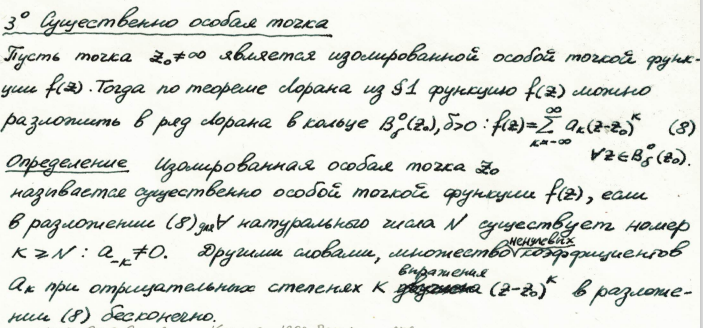 3° Существенно особая точка
Пусть точка z₀≠∞ является изолированной особой точкой функ-
ции f(z). Тогда по теореме Лорана из §1 функцию f(z) можно
разложить в ряд Лорана в кольце B°_δ(z₀), δ>0 : f(z)=∑_{k=-∞}^{∞} a_k(z-z₀)^k (8)
∀z∈B°_δ(z₀).
Определение Изолированная особая точка z₀
называется существенно особой точкой функции f(z), если
в разложении (8) для ∀ натурального числа N существует номер
k ≥ N : a_{-k}≠0. Другими словами, множество ненулевых коэффициентов
a_k при отрицательных степенях k выражения (z-z₀)^k в разложе-
нии (8) бесконечно.